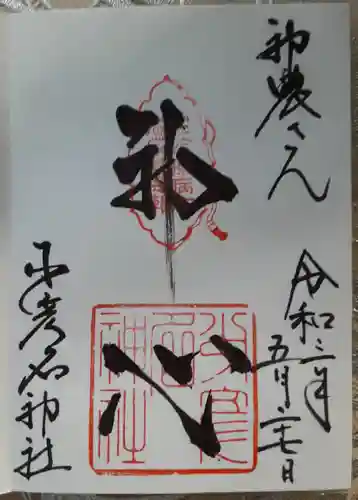 神農さん
祈
心
令和二年
五月二七日
少彦名神社
少彦名神社